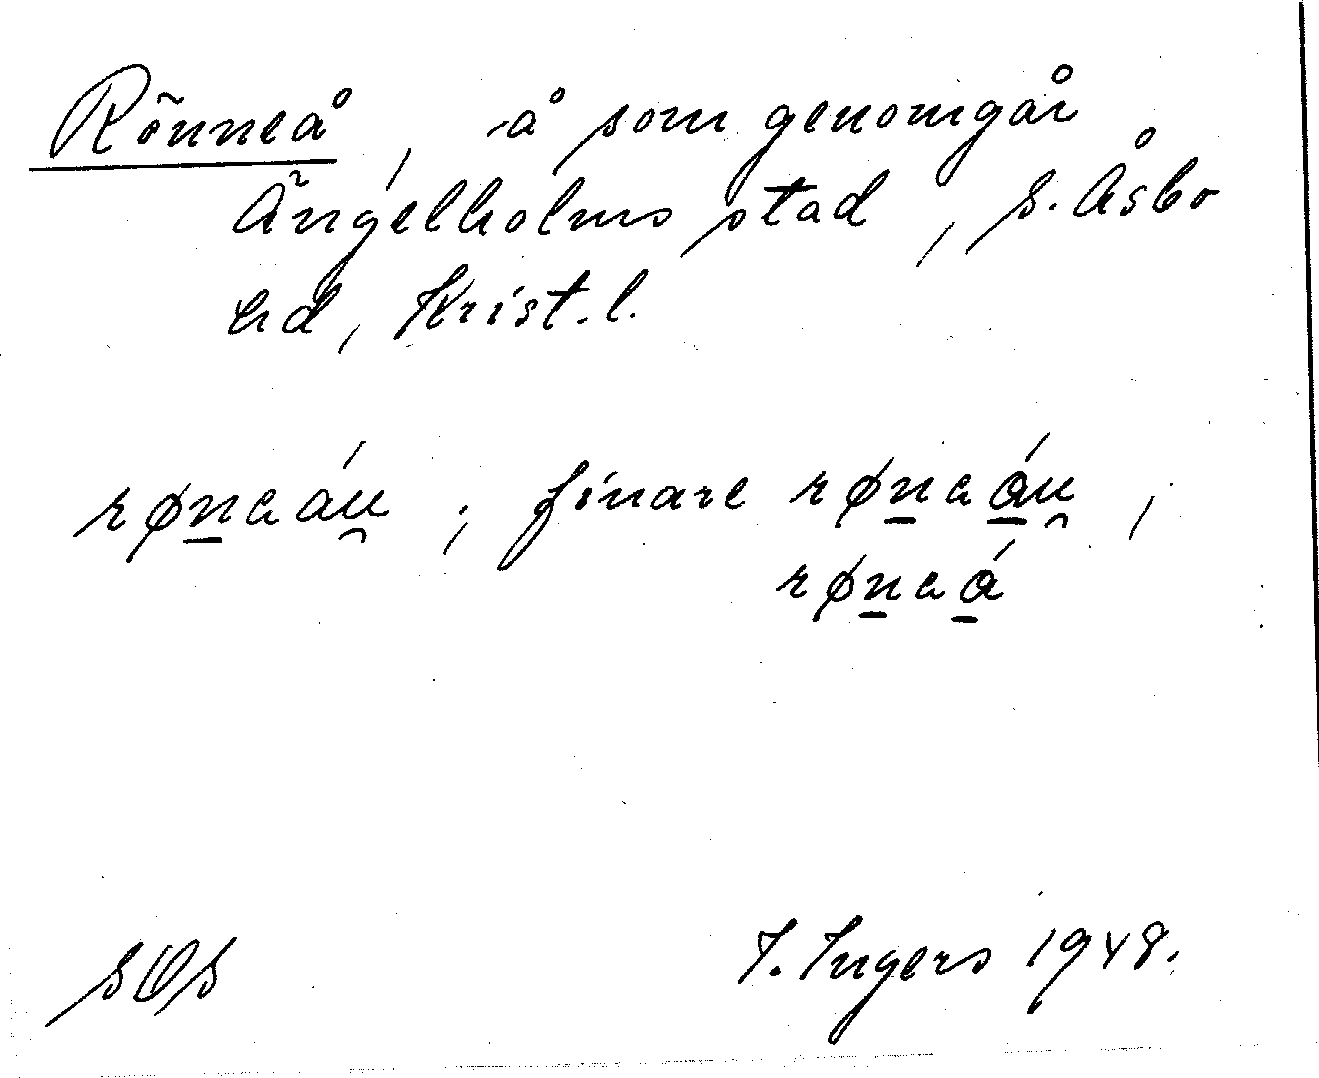 Rönneå, -å som genomgår
Ängelholms stad, S. Åsbo
hd, Krist. l.
røn̲aáu̯; finare røn̲aá̲u̯,
røn̲aá̲
SOS I. Ingers 1948.